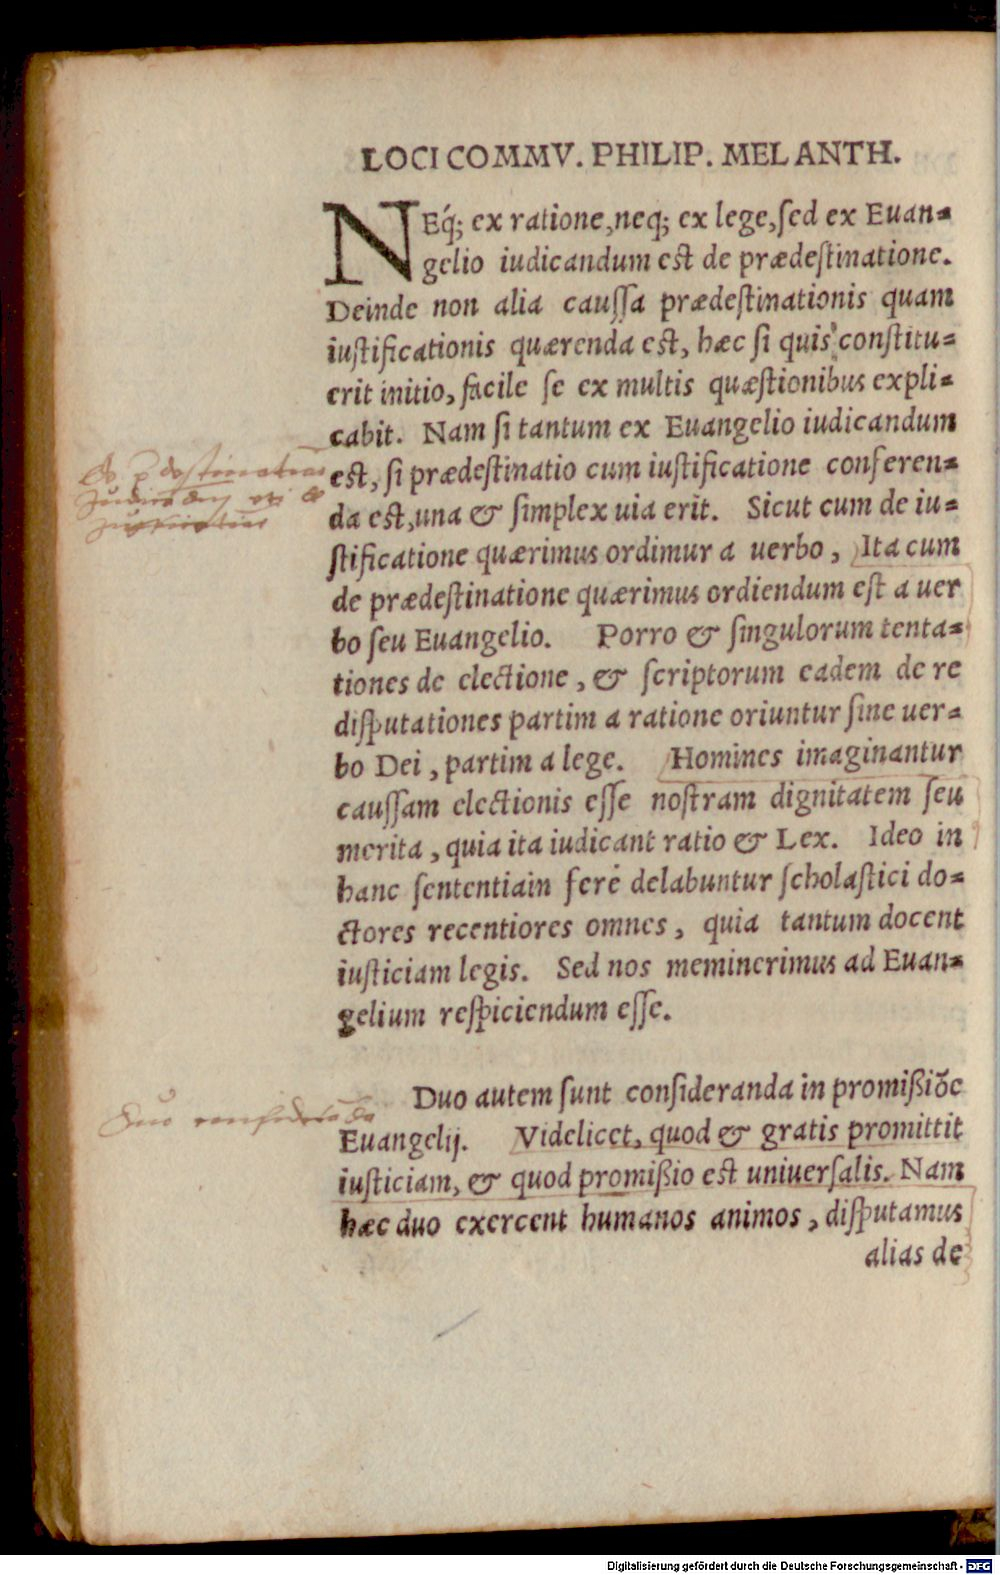 LOCI COMMV. PHILIP. MELANTH.
NEq́; ex ratione, neq; ex lege, ſed ex Euan⸗
gelio iudicandum est de prædeſtinatione.
Deinde non alia cauſſa prædeſtinationis quam
iuſtificationis quærenda est, hæc ſi quis conſtitu⸗
erit initio, facile ſe ex multis quæſtionibus expli⸗
cabit. Nam ſi tantum ex Euangelio iudicandum
est, ſi prædeſtinatio cum iuſtificatione conferen⸗
da est, una & ſimplex uia erit. Sicut cum de iu⸗
ſtificatione quærimus ordimur a uerbo, Ita cum
de prædeſtinatione quærimus ordiendum eſt a uer
bo ſeu Euangelio. Porro & ſingulorum tenta⸗
tiones de electione, & ſcriptorum eadem de re
diſputationes partim a ratione oriuntur ſine uer⸗
bo Dei, partim a lege. Homines imaginantur
cauſſam electionis eſſe noſtram dignitatem ſeu
merita, quia ita iudicant ratio & Lex. Ideo in
hanc ſententiain ferè delabuntur ſcholaſtici do⸗
ctores recentiores omnes, quia tantum docent
iuſticiam legis. Sed nos meminerimus ad Euan⸗
gelium reſpiciendum eſſe.
Duo autem ſunt conſideranda in promißiõe
Duo conſideranda
Euangelij. Videlicet, quod & gratis promittit
iuſticiam, & quod promißio est uniuerſalis. Nam
hæc duo exercent humanos animos, diſputamus
alias de
Digitalisierung gefördert durch die Deutsche Forschungsgemeinschaft - DFG